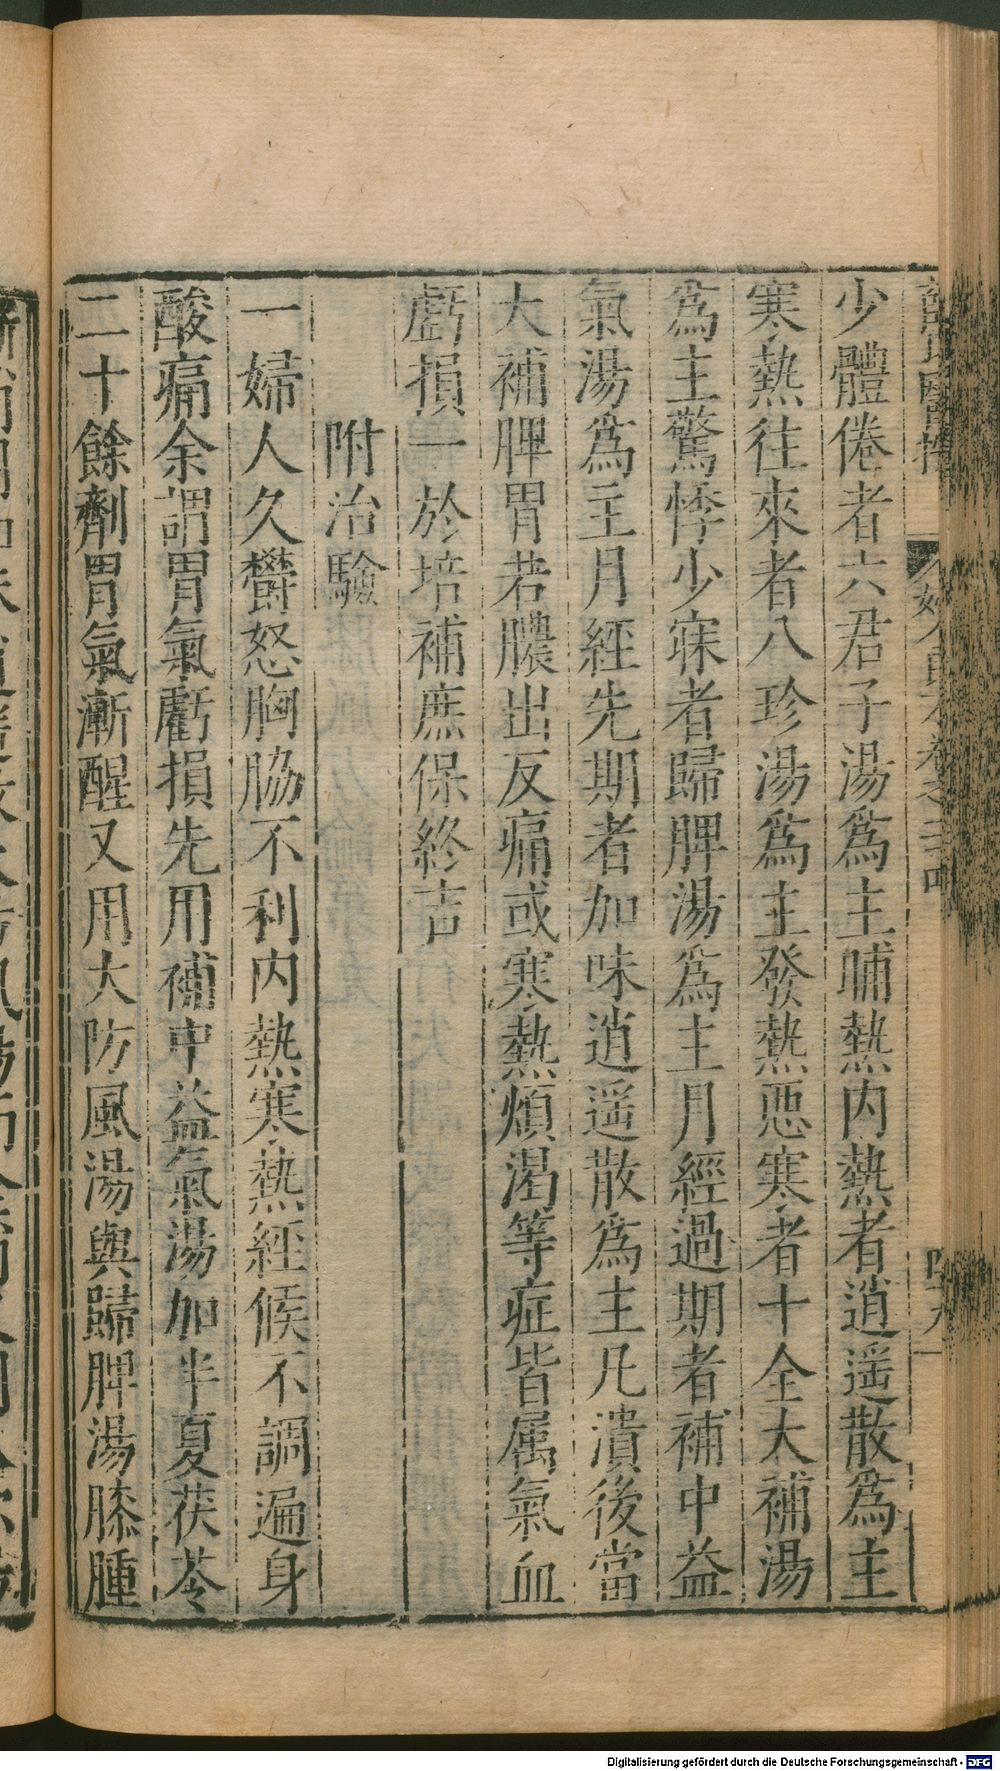 少體倦者六君子湯爲主晡熱内熱者逍遥散爲主
寒熱往來者八珍湯爲主發熱惡寒者十全大補湯
爲主驚悸少寐者歸脾湯爲主月經過期者補中益
氣湯爲主月經先期者加味逍遥散爲主凡潰後當
大補脾胃若膿出反痛或寒熱煩渴等症皆属氣血
虧損一於培補庶保終吉
附治驗
一婦人久鬱怒胸脇不利内熱寒熱經候不調遍身
酸痛余謂胃氣虧損先用補中益氣湯加半夏茯苓
二十餘劑胃氣漸醒又用大防風湯與歸脾湯膝腫
Digitalisierung gefördert durch die Deutsche Forschungsgemeinschaft - DFG